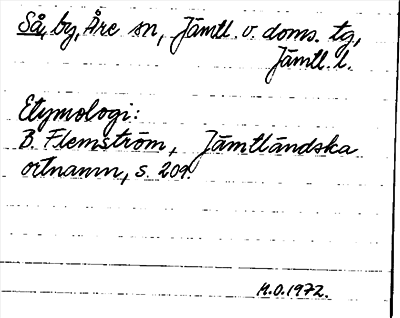 Så, by, Åre sn, Jämtl. v. doms. tg,
Jämtl. l.
Etymologi:
B. Flemström, Jämtländska
ortnamn, s. 209.
M.O.1972.